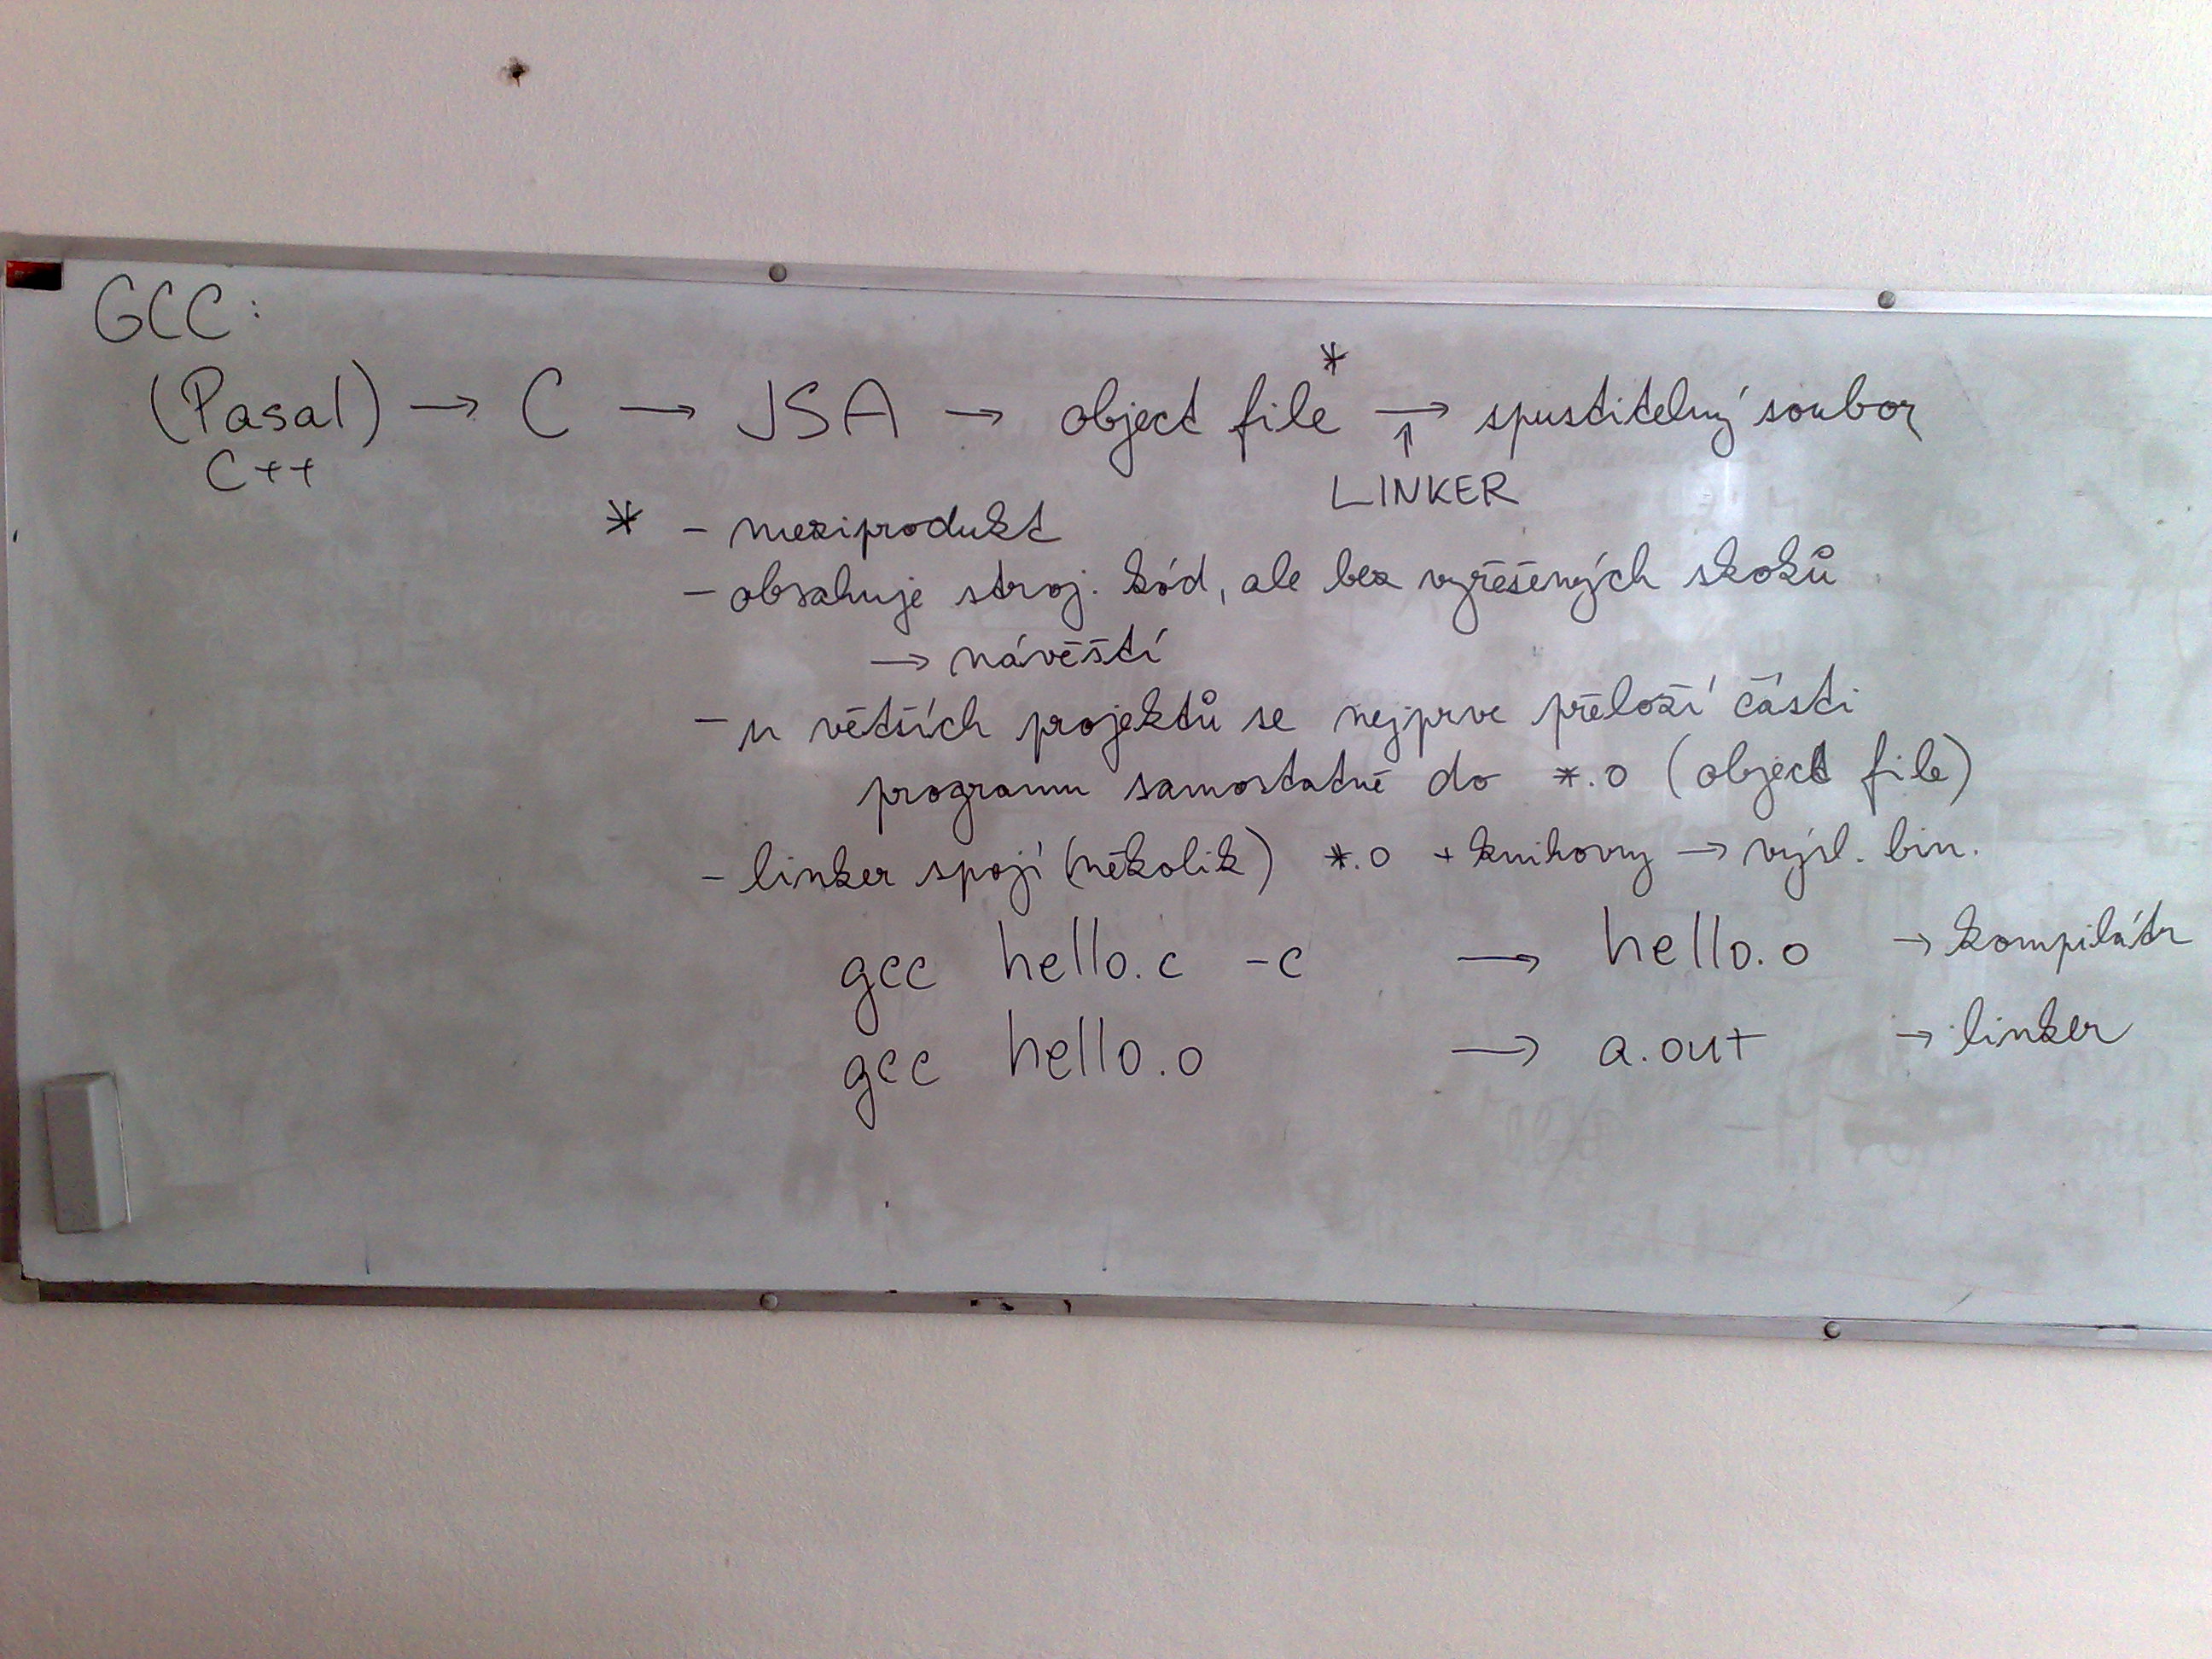 GCC:
*
(Pasal) → C → JSA → object file → spustitelný soubor
C++
↑
LINKER
* - meziprodukt
- obsahuje stroj. kód, ale bez vyřešených skoků
→ návěští
- u větších projektů se nejprve přeloží části
programu samostatně do *.o (object file)
- linker spojí (několik) *.o + knihovny → výsl. bin.
gcc hello.c -c → hello.o → kompilátr
gcc hello.o → a.out → linker